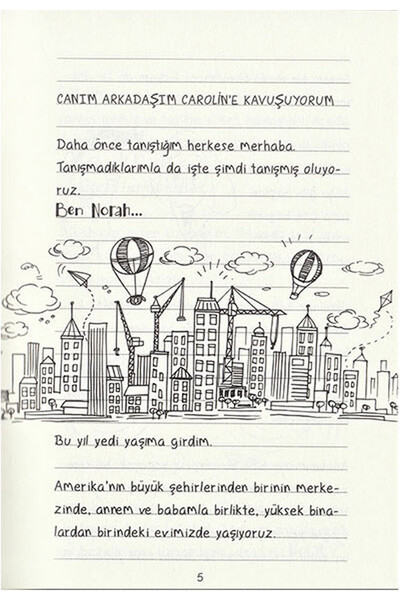 CANIM ARKADAŞIM CAROLİN'E KAVUŞUYORUM
Daha önce tanıştığım herkese merhaba.
Tanışmadıklarımla da işte şimdi tanışmış oluyo-
ruz.
Ben Norah...
Bu yıl yedi yaşıma girdim.
Amerika'nın büyük şehirlerinden birinin merke-
zinde, annem ve babamla birlikte, yüksek bina-
lardan birindeki evimizde yaşıyoruz.
5